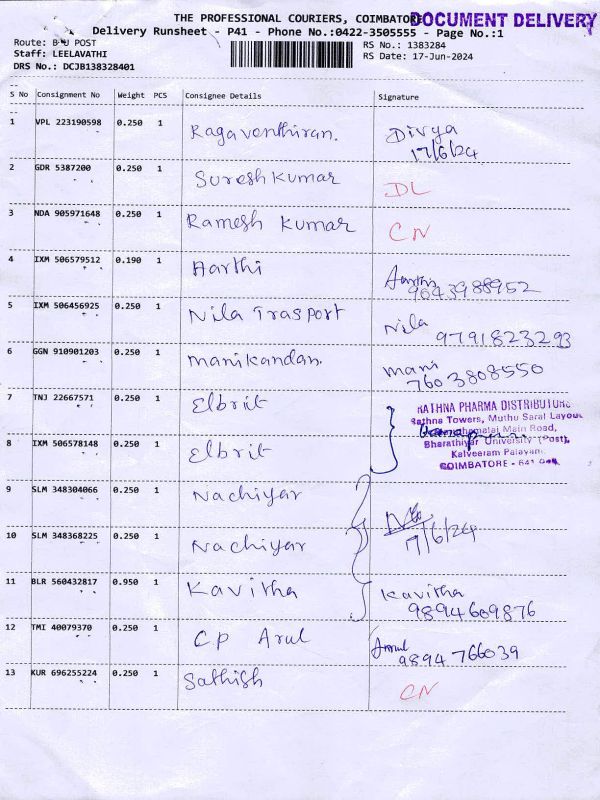 THE PROFESSIONAL COURIERS, COIMBATORE
DOCUMENT DELIVERY
Delivery Runsheet - P41 - Phone No.:0422-3505555 - Page No.:1
Route: B U POST
RS No.: 1383284
Staff: LEELAVATHI
RS Date: 17-Jun-2024
DRS No.: DCJB138328401
S No Consignment No Weight PCS Consignee Details Signature
1 VPL 223190598 0.250 1 Ragaventhiran. Divya
17/6/24
2 GDR 5387200 0.250 1 Sureshkumar DL
3 NDA 905971648 0.250 1 Ramesh Kumar CN
4 IXM 506579512 0.190 1 Aarthi Aarthi
9043988952
5 IXM 506456925 0.250 1 Nila Trasport Nila
9791823293
6 GGN 910901203 0.250 1 manikandan. mani
7603808550
7 TNJ 22667571 0.250 1 Elbrit
RATHNA PHARMA DISTRIBUTORS
Rathna Towers, Muthu Saral Layout
Main Road,
8 IXM 506578148 0.250 1 Elbrit
Bharathiyar University (Post),
Kalveeram Palayam,
COIMBATORE - 641
9 SLM 348304066 0.250 1 Nachiyar
17/6/24
10 SLM 348368225 0.250 1 Nachiyar
11 BLR 560432817 0.950 1 Kavitha Kavitha
9894609876
12 TMI 40079370 0.250 1 CP Arul Arul
9894766039
13 KUR 696255224 0.250 1 Sathish CN